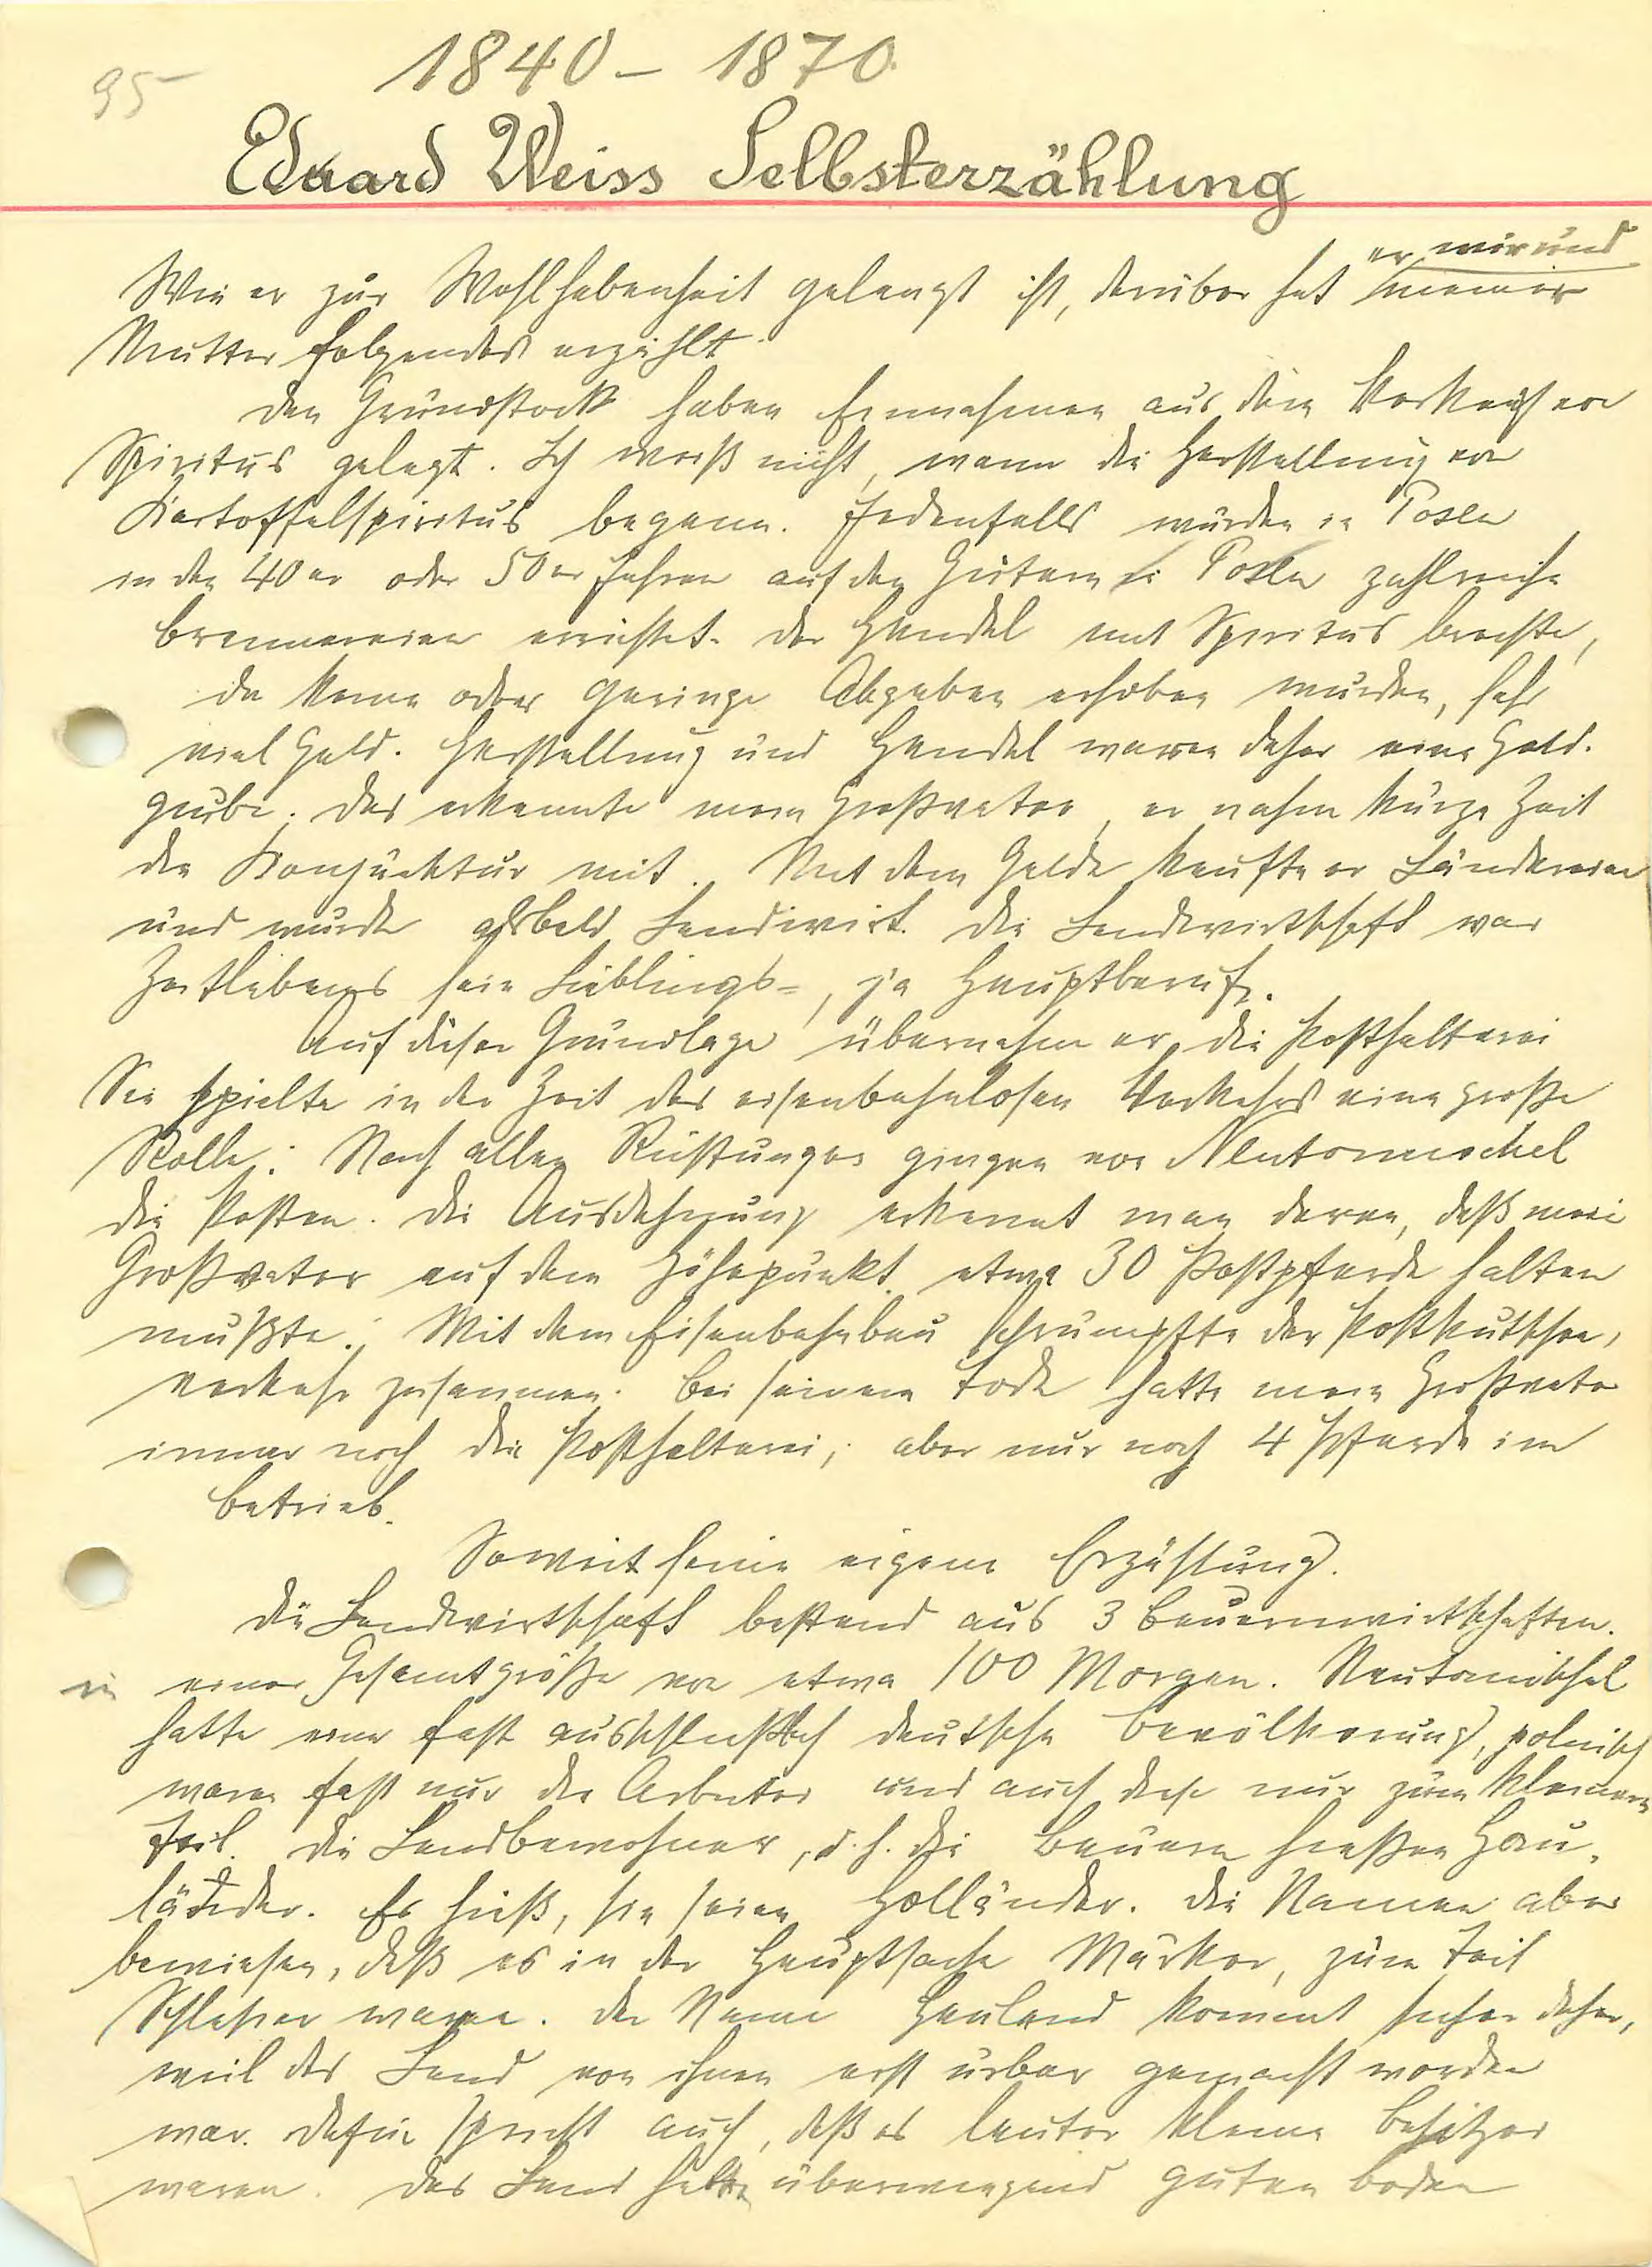 95
1840 – 1870
Eduard Weiss Selbsterzählung
er mir und
Wie er zur Wohlhabenheit gelangt ist, darüber hat meiner
Mutter folgendes erzählt
Den Grundstock haben Einnahmen aus dem Verkauf von
Spiritus gelegt. Ich weiß nicht, wann die Herstellung von
Kartoffelspiritus begann. Jedenfalls wurden in Posen
in den 40er oder 50er Jahren auf den Gütern in Posen zahlreiche
Brennereien errichtet. Der Handel mit Spiritus brachte,
da keine oder geringe Abgaben erhoben wurden, sehr
viel Geld. Herstellung und Handel waren daher eine Gold-
grube. Das erkannte mein Großvater, er nahm kurze Zeit
die Konjunktur mit. Mit dem Gelde kaufte er Ländereien
und wurde alsbald Landwirt. Die Landwirtschaft war
Zeitlebens sein Lieblings-, ja Hauptberuf.
Auf dieser Grundlage übernahm er die Posthalterei
Sie spielte in der Zeit des eisenbahnlosen Verkehrs eine große
Rolle. Nach allen Richtungen gingen von Neutomischel
die Posten. Die Ausdehnung erkennt man daran, daß mein
Großvater auf dem Höhepunkt etwa 30 Postpferde halten
mußte. Mit dem Eisenbahnbau schrumpfte der Postkutschen-
verkehr zusammen. Bei seinem Tode hatte mein Großvater
immer noch die Posthalterei, aber nur noch 4 Pferde im
Betrieb.
Soweit seine eigene Erzählung.
Die Landwirtschaft bestand aus 3 Bauernwirtschaften.
in einer Gesamtgröße von etwa 100 Morgen. Neutomischel
hatte eine fast ausschließlich deutsche Bevölkerung, polnisch
waren fast nur die Arbeiter und auch diese nur zum kleineren
Teil. Die Landbewohner, d. h. die Bauern hießen Hau-
länder. Es hieß, sie seien Holländer. Die Namen aber
bewiesen, daß es in der Hauptsache Märker, zum Teil
Schlesier waren. Der Name Hauland kommt sicher daher,
weil das Land von ihnen erst urbar gemacht worden
war. Dafür spricht auch, daß es lauter kleine Besitzer
waren. Das Land hatte überwiegend guten Boden